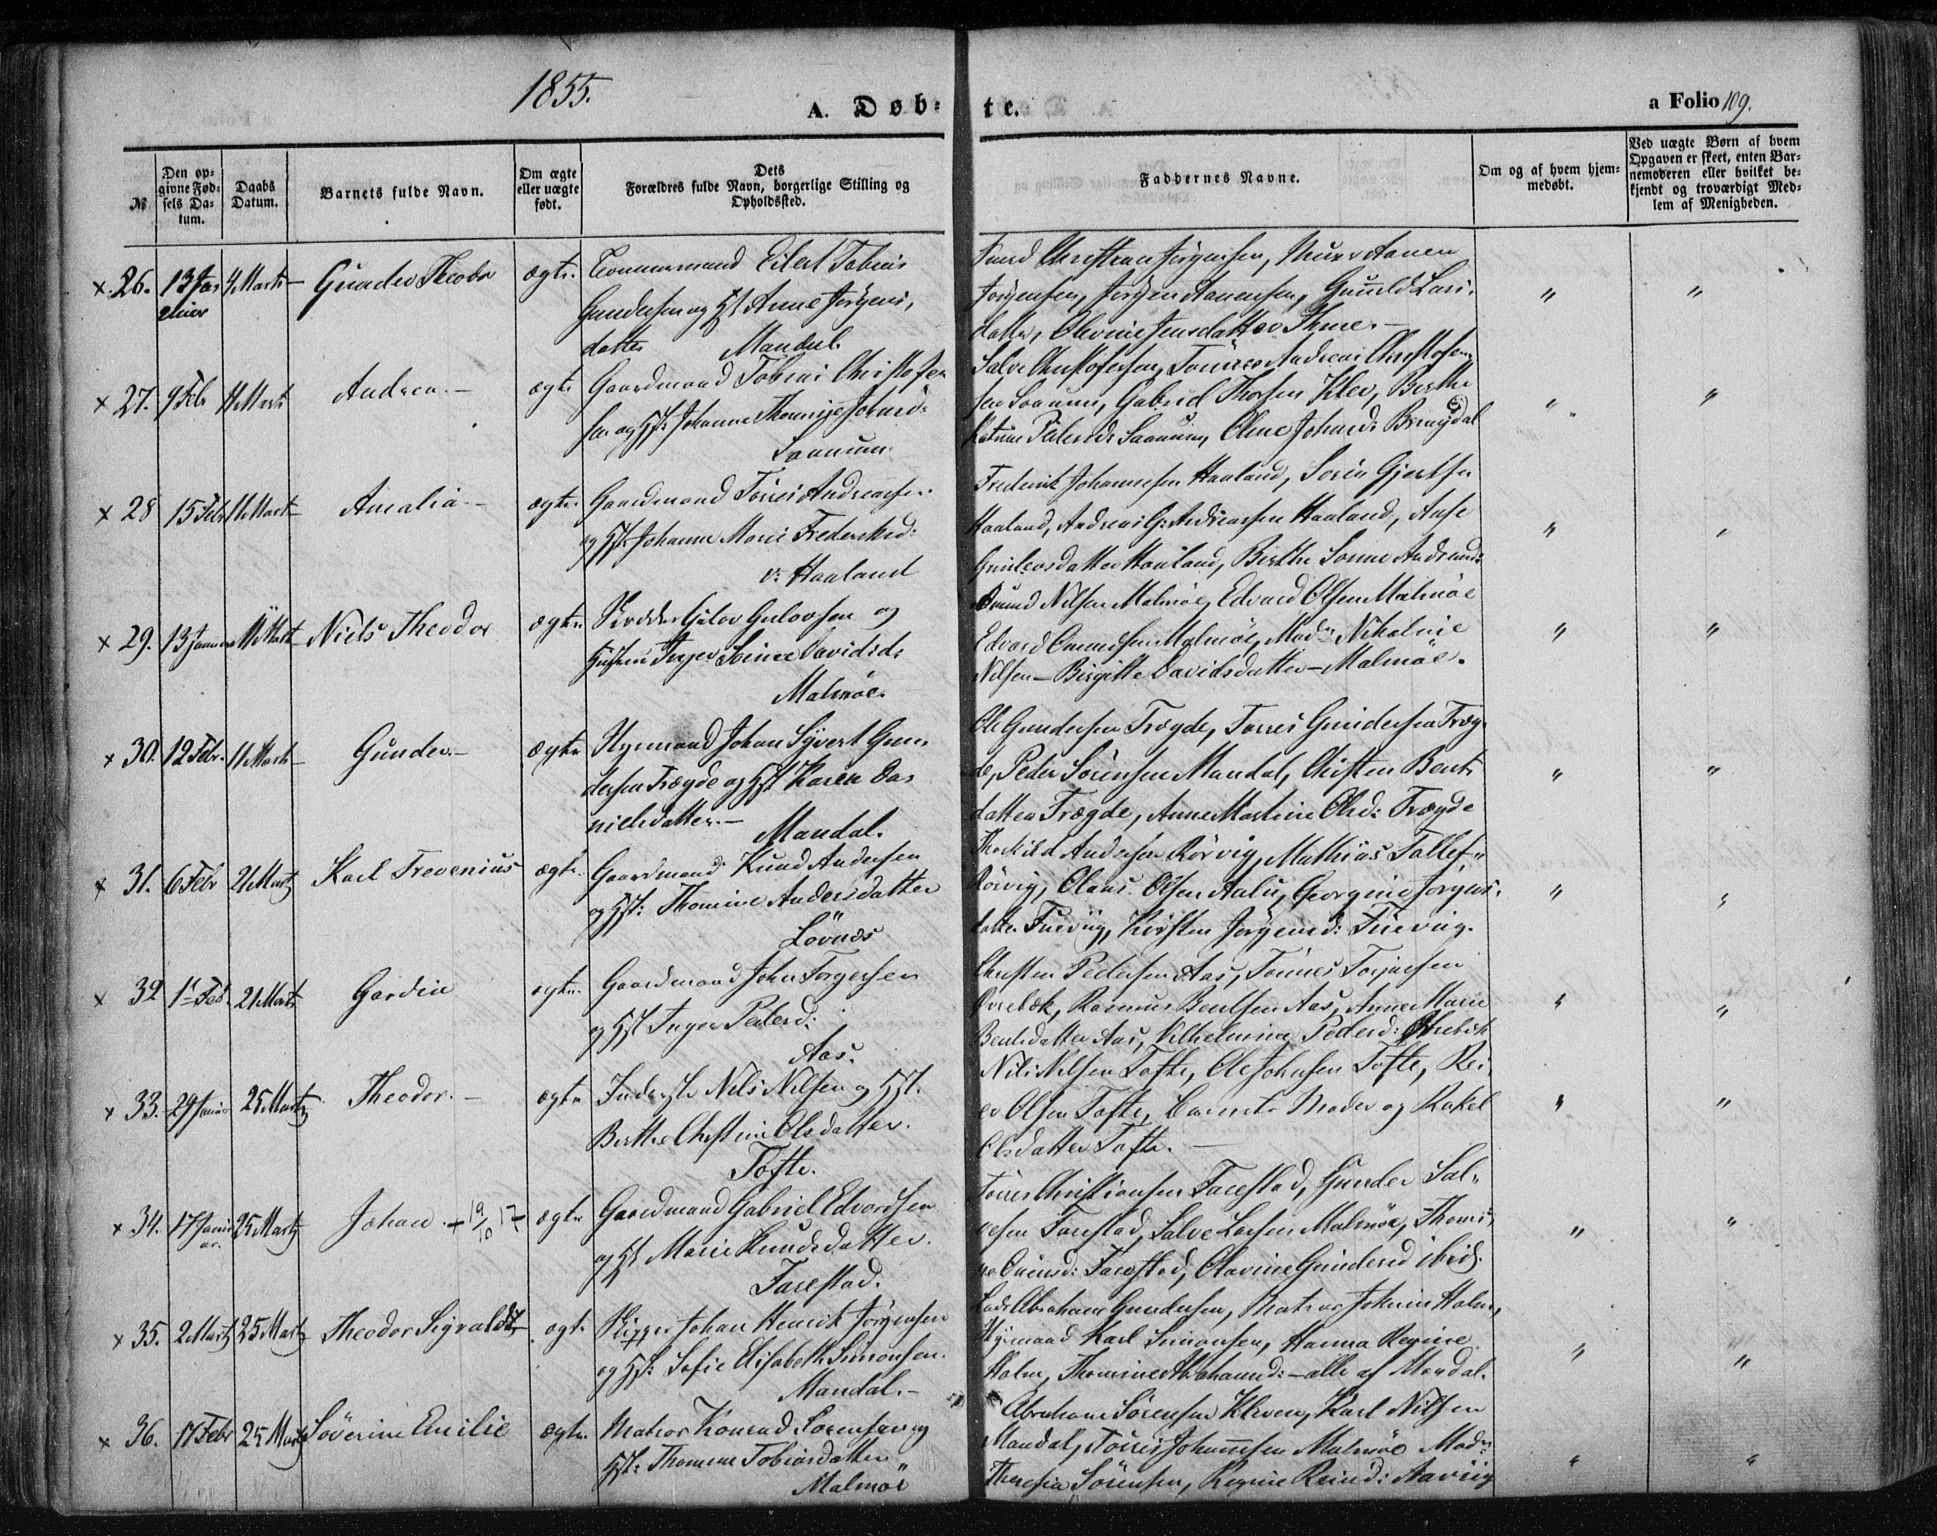 1855.
A. Døb=
te.
a Folio 109.
№
Den op-
givne Fød-
sels Da-
tum.
Daabs
Datum.
Barnets fulde Navn.
Om ægte
eller uægte
født.
Dets
Forældres fulde Navn, borgerlige Stilling og
Opholdssted.
Faddernes Navne.
Om og af hvem hjem-
medøbt.
Ved uægte Børn af hvem
Opgaven er skeet, enten Bar-
nemoderen eller hvilket be-
kjendt og troværdigt Med-
lem af Menigheden.
× 26. 13 Jan 4 Marts Gunder Theodor ægte. Tømmermand Eilert Tobias
Gundersen og Hst Anne Jörgens,
datter Mandal.
Christian Jörgensen, Aanen
Jörgensen, Jörgen Aanensen, Gunild Lars,
datter, Olevine Jensdatter Ihme. –
× 27. 9 Feb 11 Marts Andrea. – ægte Gaardmand Tobias Christofer
sen og Hst: Johanne Thomine Johnsd:
Saanum
Salve Christofersen, Tönnes Andreas Christofer
sen Saanum, Gabriel Thorsen Klev, Berthe
Katrine Pedersd: Saanum, Oline Johnsd: Bringsdal
× 28 15 Feb 11 Marts Amalia – ægte. Gaardmand Törres Andreassen
og Hst: Johanne Marie Frederiksd:
v: Haaland
Frederik Johannesen Haaland, Soren Gjertsen
Haaland, Andreas G: Andreassen Haaland, Aase
Gundersdatter Haaland, Berthe Andreasd:
× 29. 13 Januar 11 Marts Niels Theodor ægte. Gulov Gulovsen og
Hustru Inger Serine Davidsd:
Malmöe.
Omund Nilsen Malmöe, Edvard Olsen Malmöe
Edvard Omundsen Malmöe, Mad: Nikoline
Nilsen – Birgitte Davidsdatter – Malmöe.
× 30. 12 Febr. 11 Marts Gunder. – ægte Styrmand Johan Syvert Gun,
dersen Trægde og Hst Karen Da,
nielsdatter. –
Mandal.
Ole Gundersen Trægde, Torres Gundersen Træg,
de, Peder Sörensen Mandal, Christen Bents
datter Trægde, Anne Martine Olsd: Trægde
× 31. 6 Febr 21 Marts Karl Trevenius ægte. Gaardmand Knud Andersen
og Hst: Thomine Andersdatter
Lövnes
Thorkild Andersen Rörvig, Mathias Tallef,,
Rörvig, Claus Olsen Aalu, Georgine Jörgens,
datter Fuevig, Kirsten Jörgensd: Fuevig.
× 32 1ste Feb. 21 Marts Gardin ægte. Gaardmand John Torgersen
og Hst Inger Pedersd:
Aas.
Christen Pedersen Aas, Tönnes Torjussen
Ovrebök, Rasmus Bentsen Aas, Anne Marie
Bentsdatter Aas, Vilhelmine Pedersd: Övrebök
× 33. 29 Januar 25 Marts Theodor. – ægte Inderste Nils Nilsen og Hst.
Berthe Christine Olsdatter.
Tofte.
Nils Nilsen Tofte, Ole Johnsen Tofte, Rei,
er Olsen Tofte, Barnets Moder og Rakel
Olsdatter Tofte. –
× 34. 17 Janu
ar. 25 Marts Johan. + 19/10 17 ægte Gaardmand Gabriel Edvardsen
og Hst Marie Knudsdatter.
Farestad.
Törres Christiansen Farestad, Gunder Sal,
vesen Farestad, Salve Larsen Malmöe, Thomi,
ne Farestad, Olavine Gundersd ibid.
× 35. 2 Marts 25 Marts Theodor Sigvald ægte. Skipper Johan Henrik Jörgensen
og Hst: Sofie Elisabeth Simonsen.
Mandal. –
Lods Abraham Gundersen, Matros Johan Holm,
Styrmand Karl Simonsen, Hanna Regine
Holm, Thomine Abrahamsd: – alle af Mandal.
× 36. 17 Febr 25 Marts Söverine Emilie ægte. Matros Konrad Sorensen og
Hst: Thomine Tobiasdatter
Malmöe
Abraham Sörensen Kleven, Karl Nilsen
Mandal, Törres Johannesen Malmöe Mad:
Theresia Sörensen, Regine Reiersd: Aavig